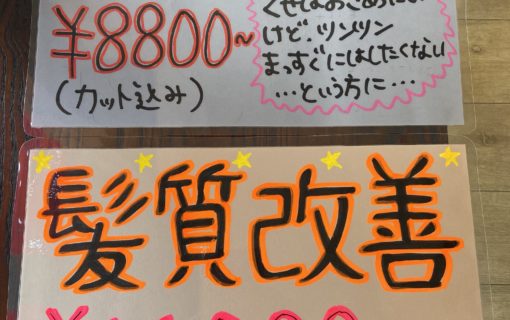 ¥8800~
(カット込み)
けど、ツンツン
まっすぐにはしたくない
…という方に…
髪質改善